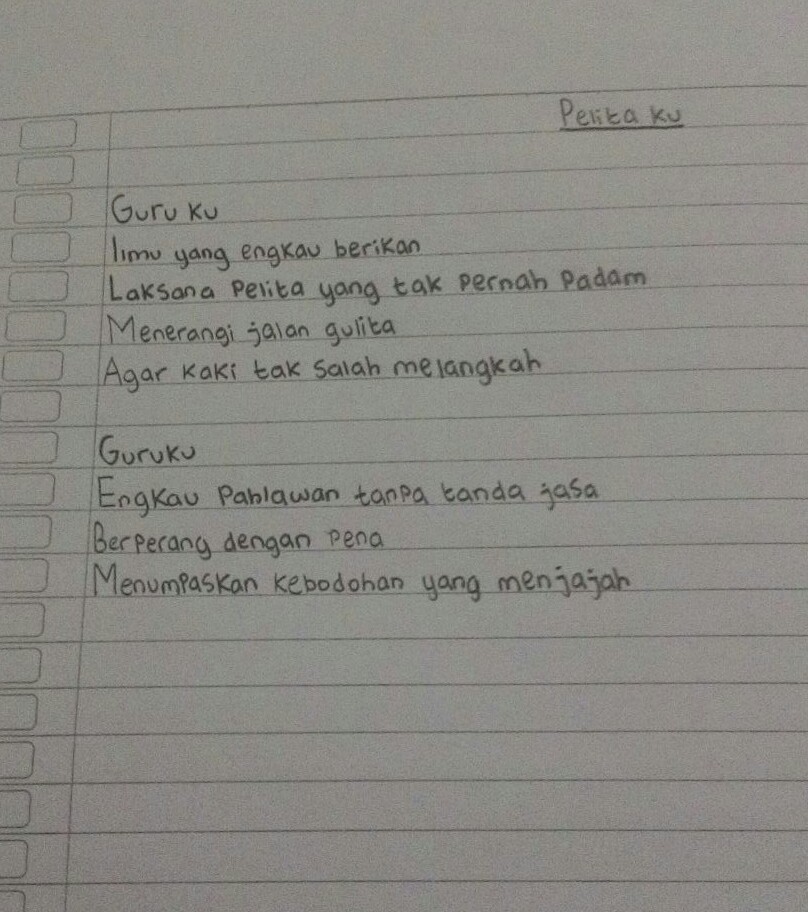 Pelita ku
Guru ku
Ilmu yang engkau berikan
Laksana Pelita yang tak pernah padam
Menerangi jalan gulita
Agar kaki tak salah melangkah
Guruku
Engkau Pahlawan tanpa tanda jasa
Berperang dengan pena
Menumpaskan kebodohan yang menjajah